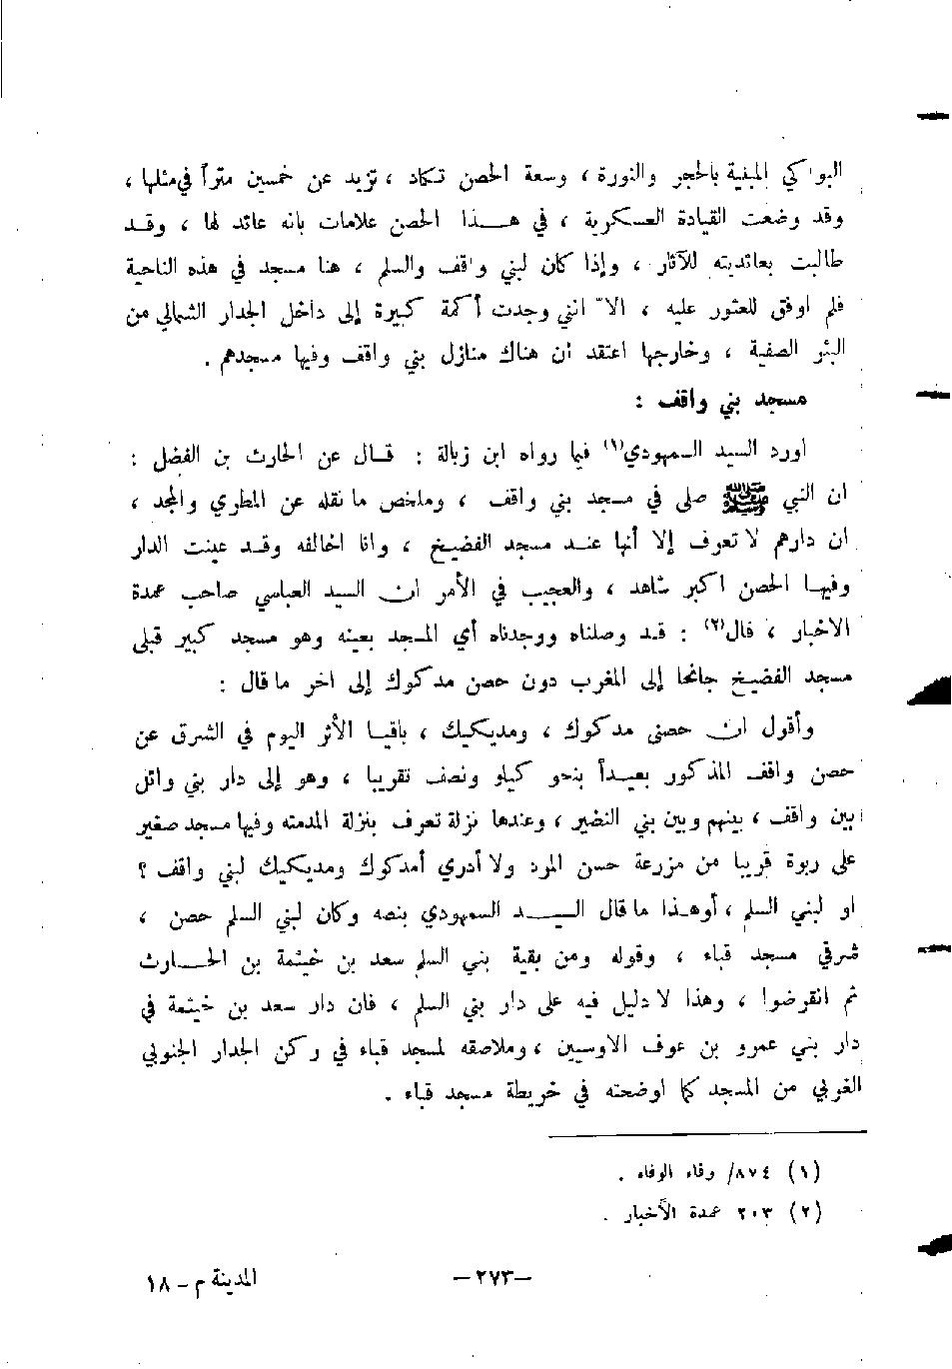 البواكي المبنية بالحجر والنورة ، وسعة الحصن تكاد ، تزيد عن خمسين متراً في مثلها ،
وقد وضعت القيادة العسكرية ، في هـذا الحصن علامات بانه عائد لها ، وقـد
طالبت بعائديته للآثار ، وإذا كان لبني واقف والسلم ، هنا مسجد في هذه الناحية
فلم اوفق للعثور عليه ، الاّ انني وجدت أكمة كبيرة إلى داخل الجدار الشمالي من
البئر الصفية ، وخارجها اعتقد ان هناك منازل بني واقف وفيها مسجدهم .
مسجد بني واقف :
اورد السيد السمهودي(١) فيما رواه ابن زبالة : قـال عن الحارث بن الفضل :
ان النبي ﷺ صلى في مسجد بني واقف ، وملخص ما نقله عن المطري والمجد ،
ان دارهم لا تعرف إلا أنها عنـد مسجد الفضيـخ ، وانا اخالفه وقـد عينت الدار
وفيهـا الحصن اكبر شاهد ، والعجيب في الأمر ان السيد العباسي صاحب عمدة
الاخبار ، قال(٢) : قـد وصلناه ووجدناه أي المسجد بعينه وهو مسجد كبير قبلي
مسجد الفضيـخ جانحا إلى المغرب دون حصن مدكوك إلى اخر ما قال :
وأقول ان حصنى مدكوك ، ومديكيك ، باقيـا الأثر اليوم في الشرق عن
حصن واقف المذكور بعيـداً بنحو كيلو ونصف تقريبا ، وهو إلى دار بني وائل
بين واقف ، بينهم وبين بني النضير ، وعندها نزلة تعرف بنزلة المدمته وفيها مسجد صغير
على ربوة قريبا من مزرعة حسن المرد ولا أدري أمدكوك ومديكيك لبني واقف ؟
او لبني السلم ، أوهـذا ما قال السيـد السمهودي بنصه وكان لبني السلم حصن ،
شرقي مسجد قباء ، وقوله ومن بقية بني السلم سعد بن خيثمة بن الحـارث
ثم انقرضوا ، وهذا لا دليل فيه على دار بني السلم ، فان دار سعد بن خيثمة في
دار بني عمرو بن عوف الاوسيين ، وملاصقه لمسجد قباء في ركن الجدار الجنوبي
الغربي من المسجد كما اوضحته في خريطة مسجد قباء .
(١) ٨٧٤/ وفاء الوفاء .
(٢) ٢٠٣ عمدة الأخبار .
–٢٧٣–
المدينة م – ١٨